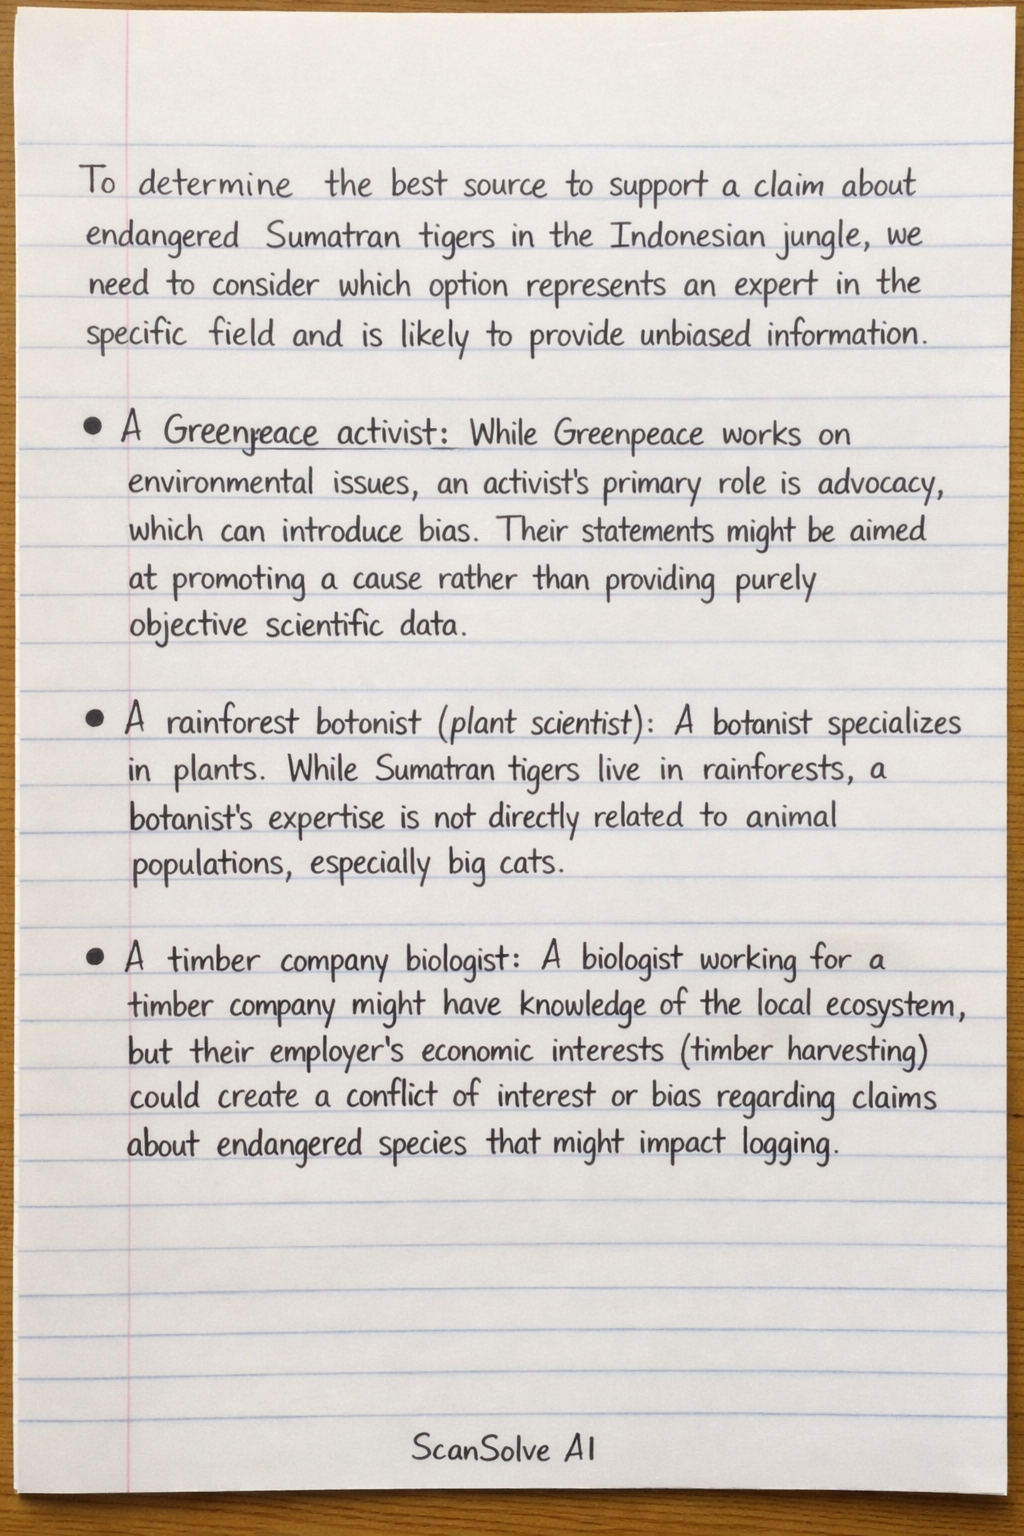 To determine the best source to support a claim about
endangered Sumatran tigers in the Indonesian jungle, we
need to consider which option represents an expert in the
specific field and is likely to provide unbiased information.
• A Greenpeace activist: While Greenpeace works on
environmental issues, an activist's primary role is advocacy,
which can introduce bias. Their statements might be aimed
at promoting a cause rather than providing purely
objective scientific data.
• A rainforest botonist (plant scientist): A botanist specializes
in plants. While Sumatran tigers live in rainforests, a
botanist's expertise is not directly related to animal
populations, especially big cats.
• A timber company biologist: A biologist working for a
timber company might have knowledge of the local ecosystem,
but their employer's economic interests (timber harvesting)
could create a conflict of interest or bias regarding claims
about endangered species that might impact logging.
ScanSolve AI